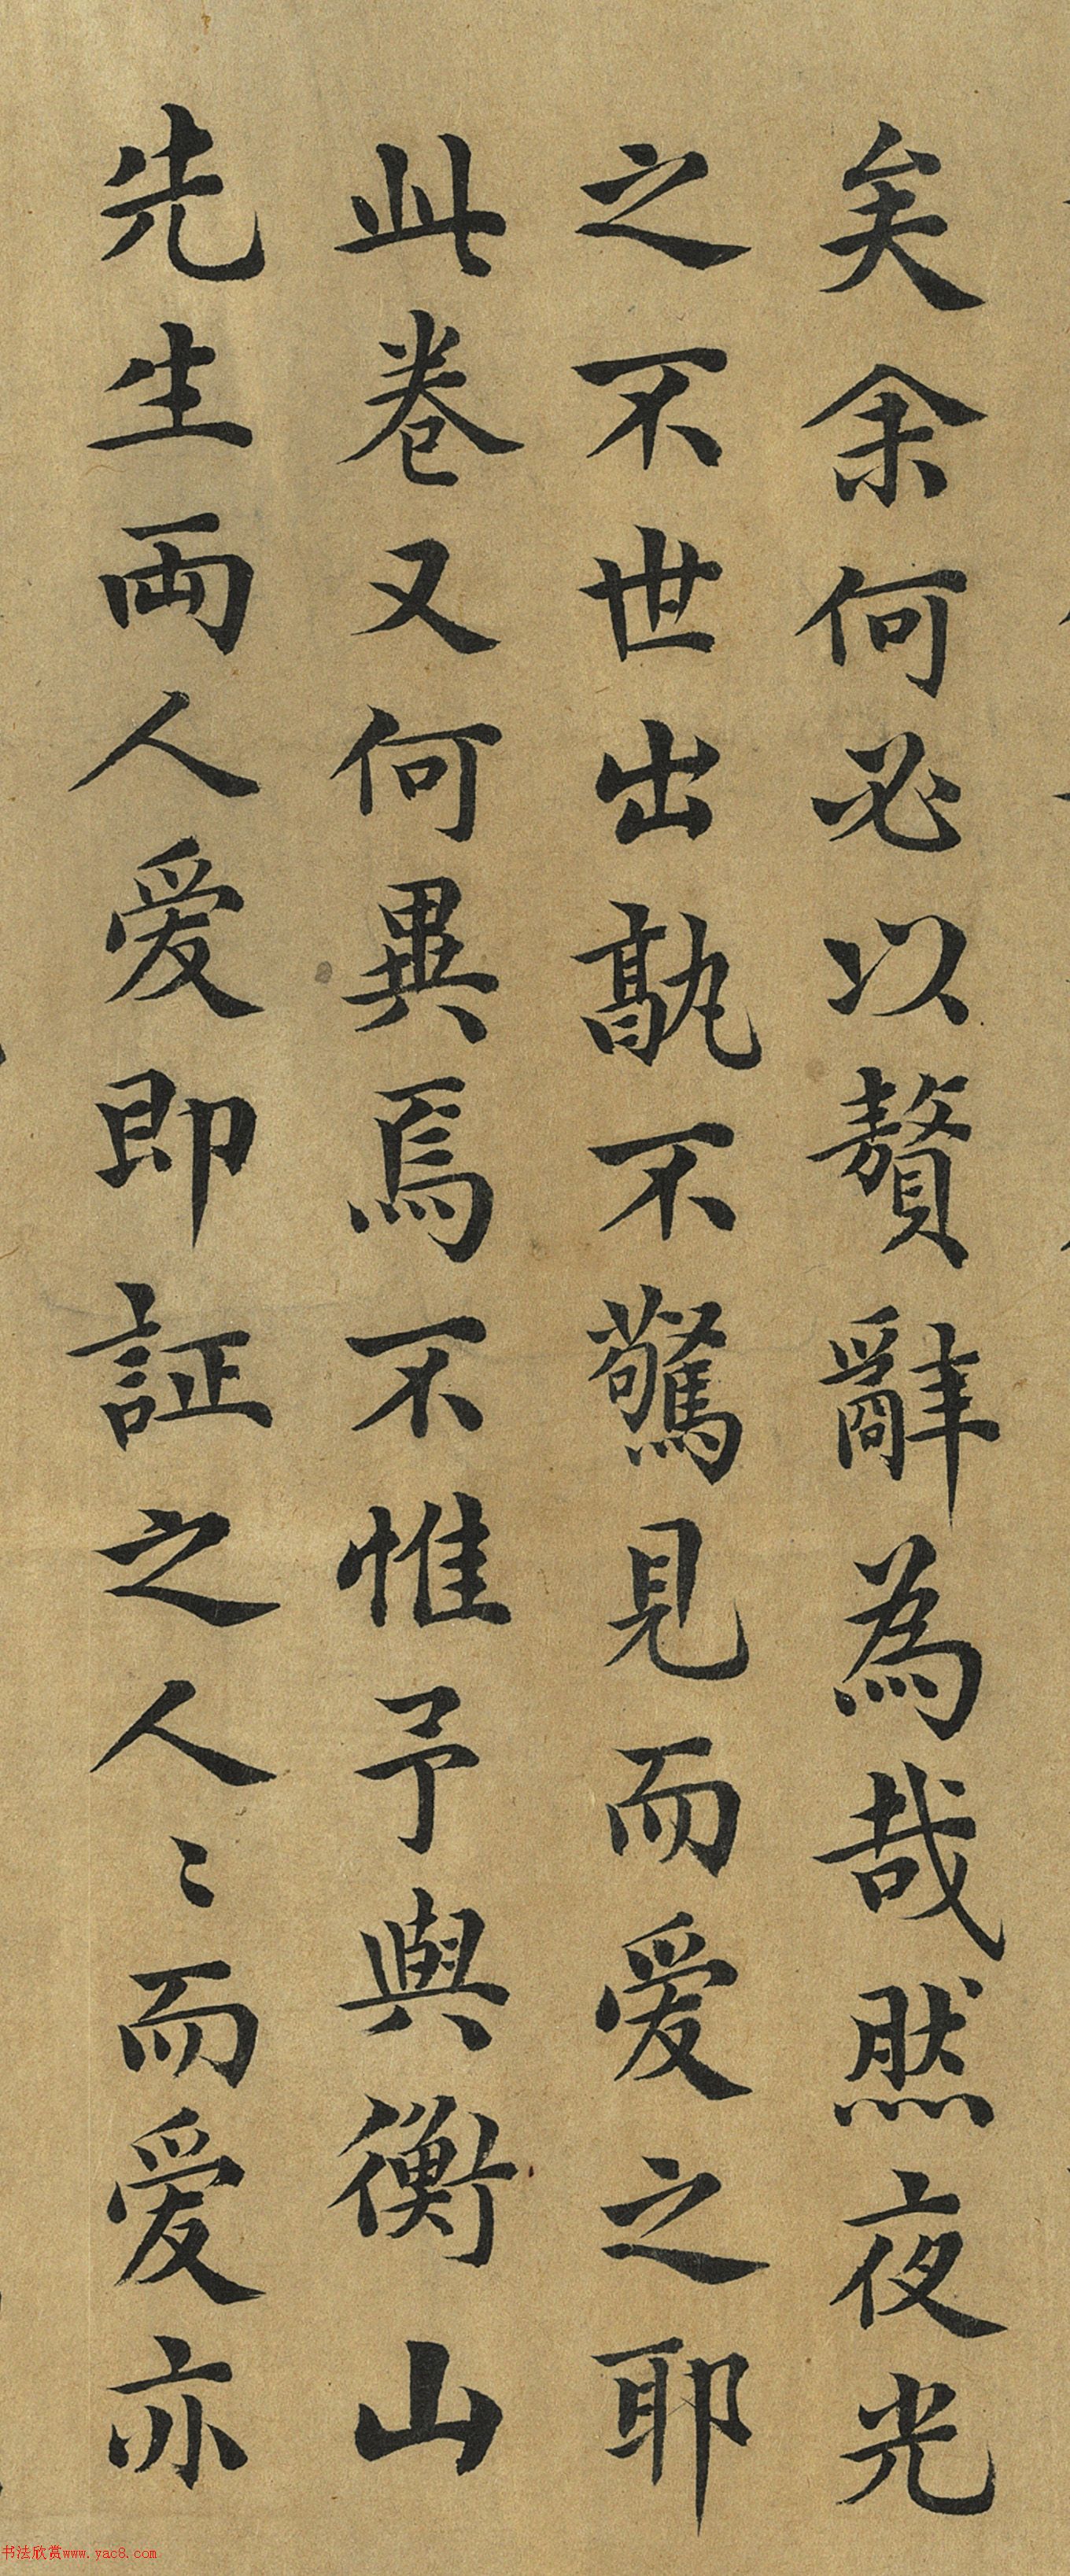 矣余何必以贅辭為哉然夜光
之不世出孰不驚見而爱之耶
此卷又何異焉不惟予與衡山
先生両人爱即証之人〻而爱亦
书法欣赏www.yac8.com